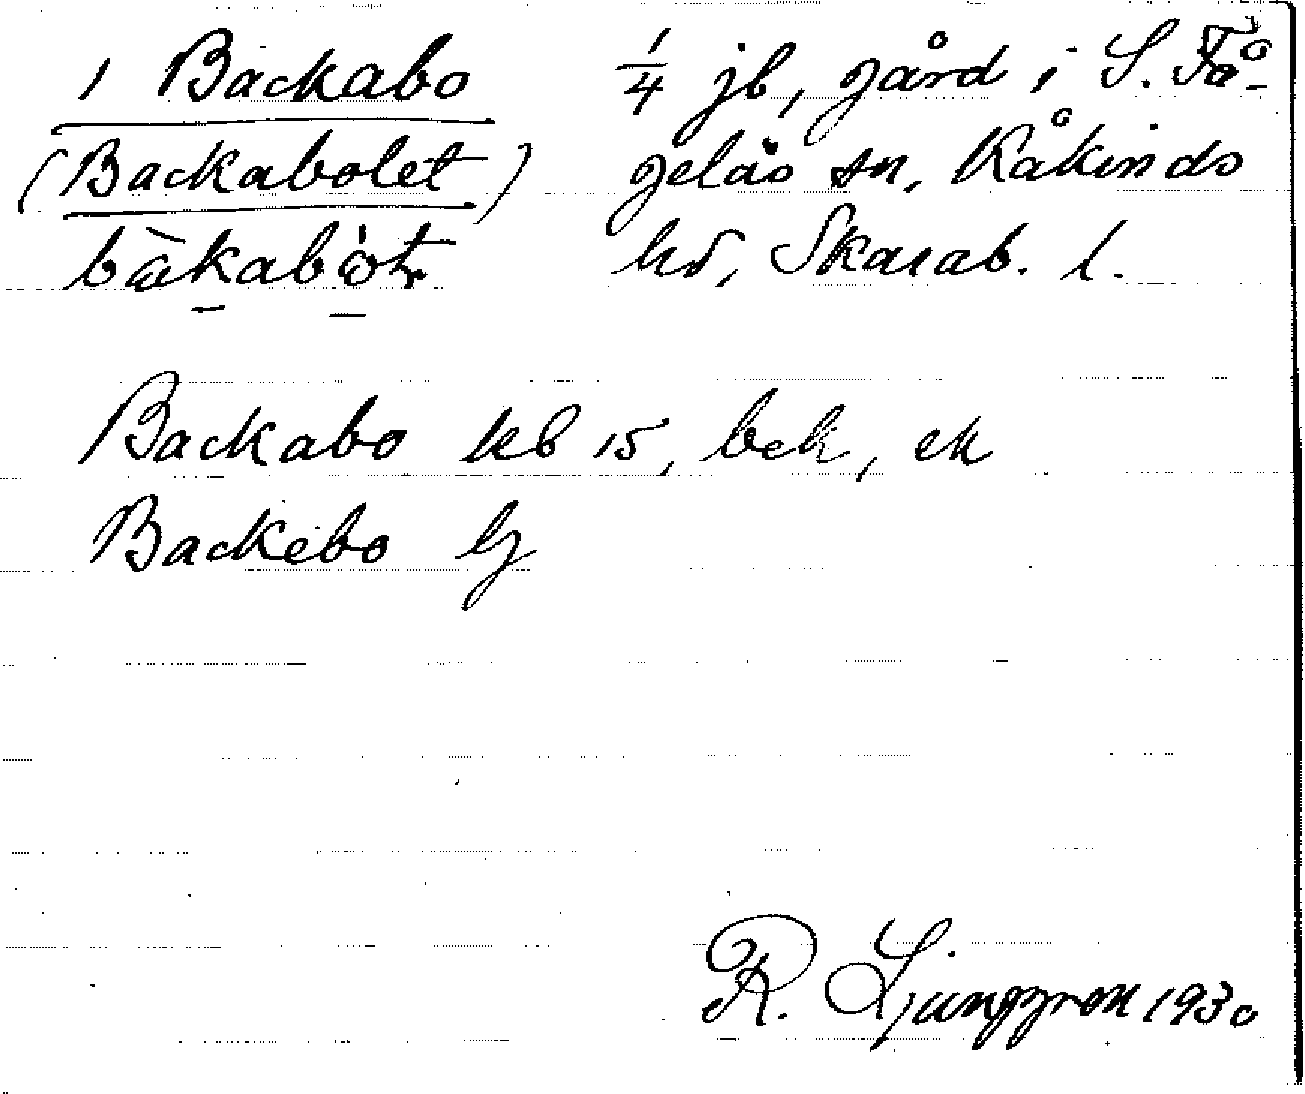 1 Backabo 1/4 jb, gård i S. Få-
(Backabolet) gelås sn, Kåkinds
hd, Skarab. l.
Backabo kb 15, bek, ek
Backebo
R. Ljunggren 1930